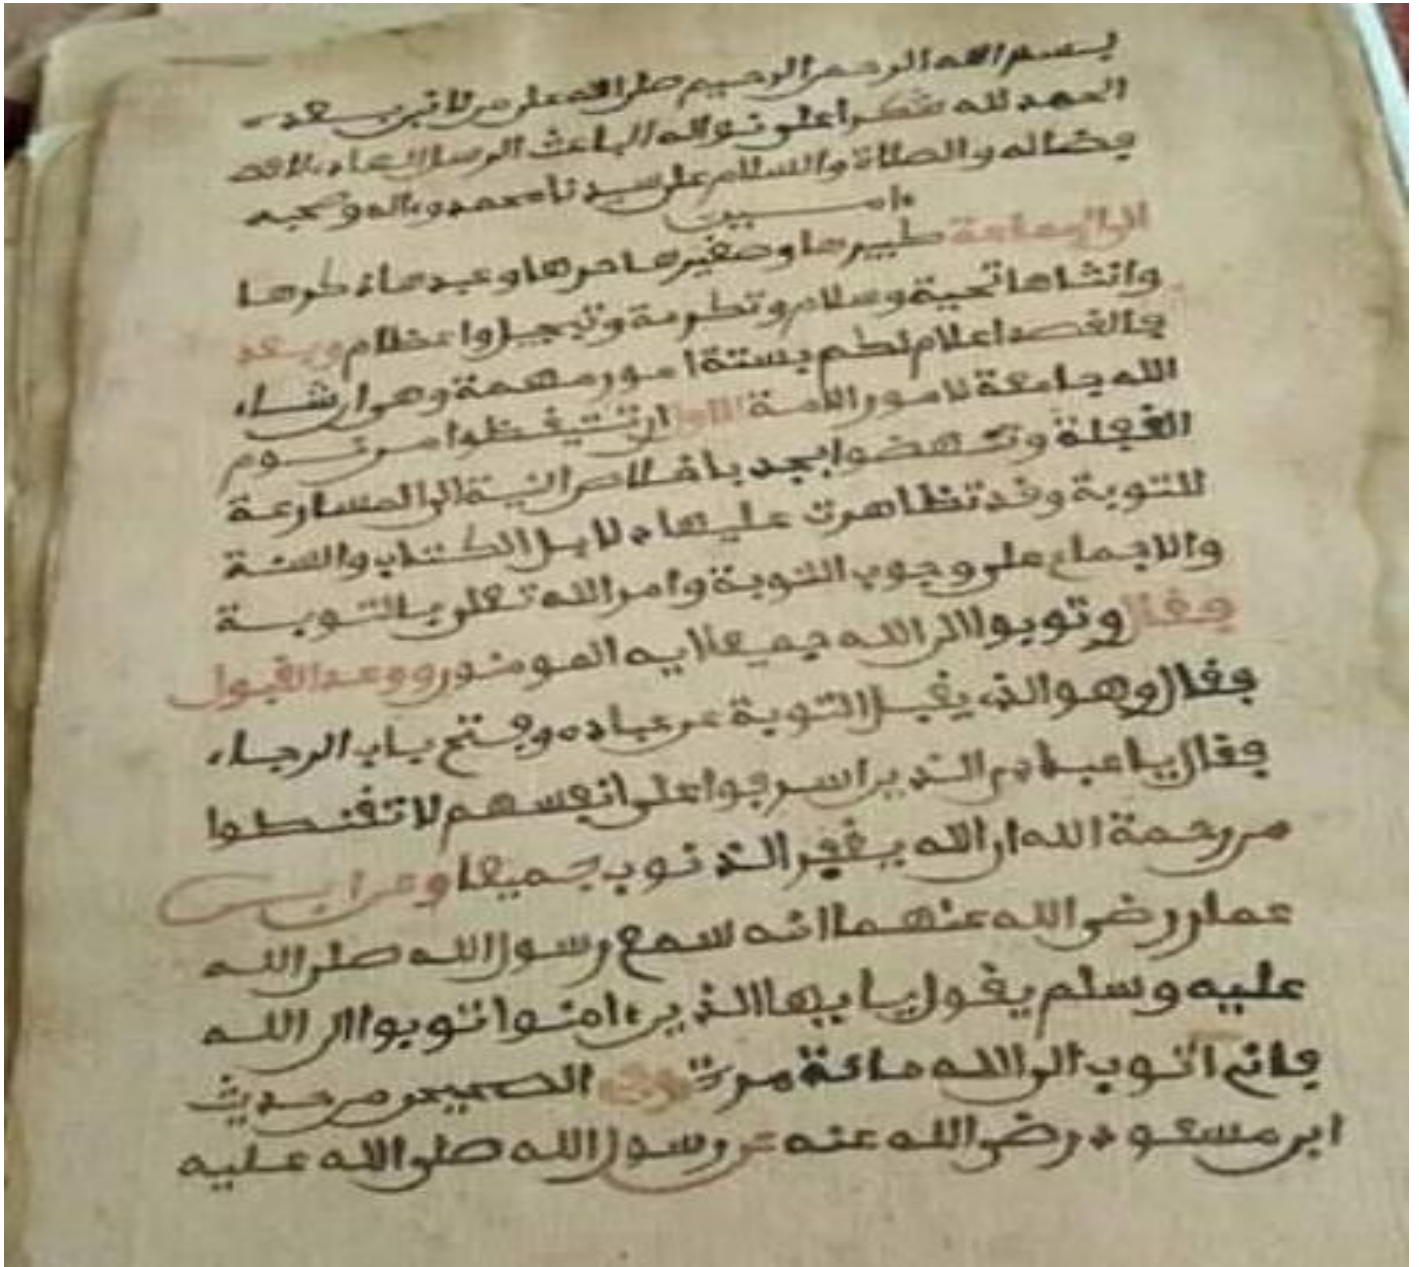 بسم الله الرحمن الرحيم صلى الله على من لا نبي بعده
الحمد لله شكرا على نواله الباعث الرسل
بضاله والصلاة والسلام على سيدنا محمد وءاله وصحبه
ءاميـــن
الى الجماعة كبيرها وصغيرها حرها وعبدها ذكرها
وانثاها تحية وسلام وتكرمة وتبجيل واعظام وبعد
فالقصد اعلامكم بستة امور مهمة وهي ان شاء
الله جامعة لامور الامة الاول ان تتيقظوا من نوم
الغفلة وتنهضوا بجد باخلاص النية الى المسارعة
للتوبة وقد تظاهرت عليها دلايل الكتاب والسنة
والاجماع على وجوب التوبة وامر الله تعلى بالتوبة
فقال وتوبوا الى الله جميعا ايه المومنون ووعد القبول
فقال وهو الذي يقبل التوبة عن عباده وفتح باب الرجاء
فقال يا عبادي الذين اسرفوا على انفسهم لا تقنطوا
من رحمة الله ان الله يغفر الذنوب جميعا وعن ابن
عمار رضي الله عنهما انه سمع رسول الله صلى الله
عليه وسلم يقول يا ايها الذين ءامنوا توبوا الى الله
فاني اتوب الى الله مائة مرة وفي الصحيحين من حديث
ابن مسعود رضي الله عنه عن رسول الله صلى الله عليه